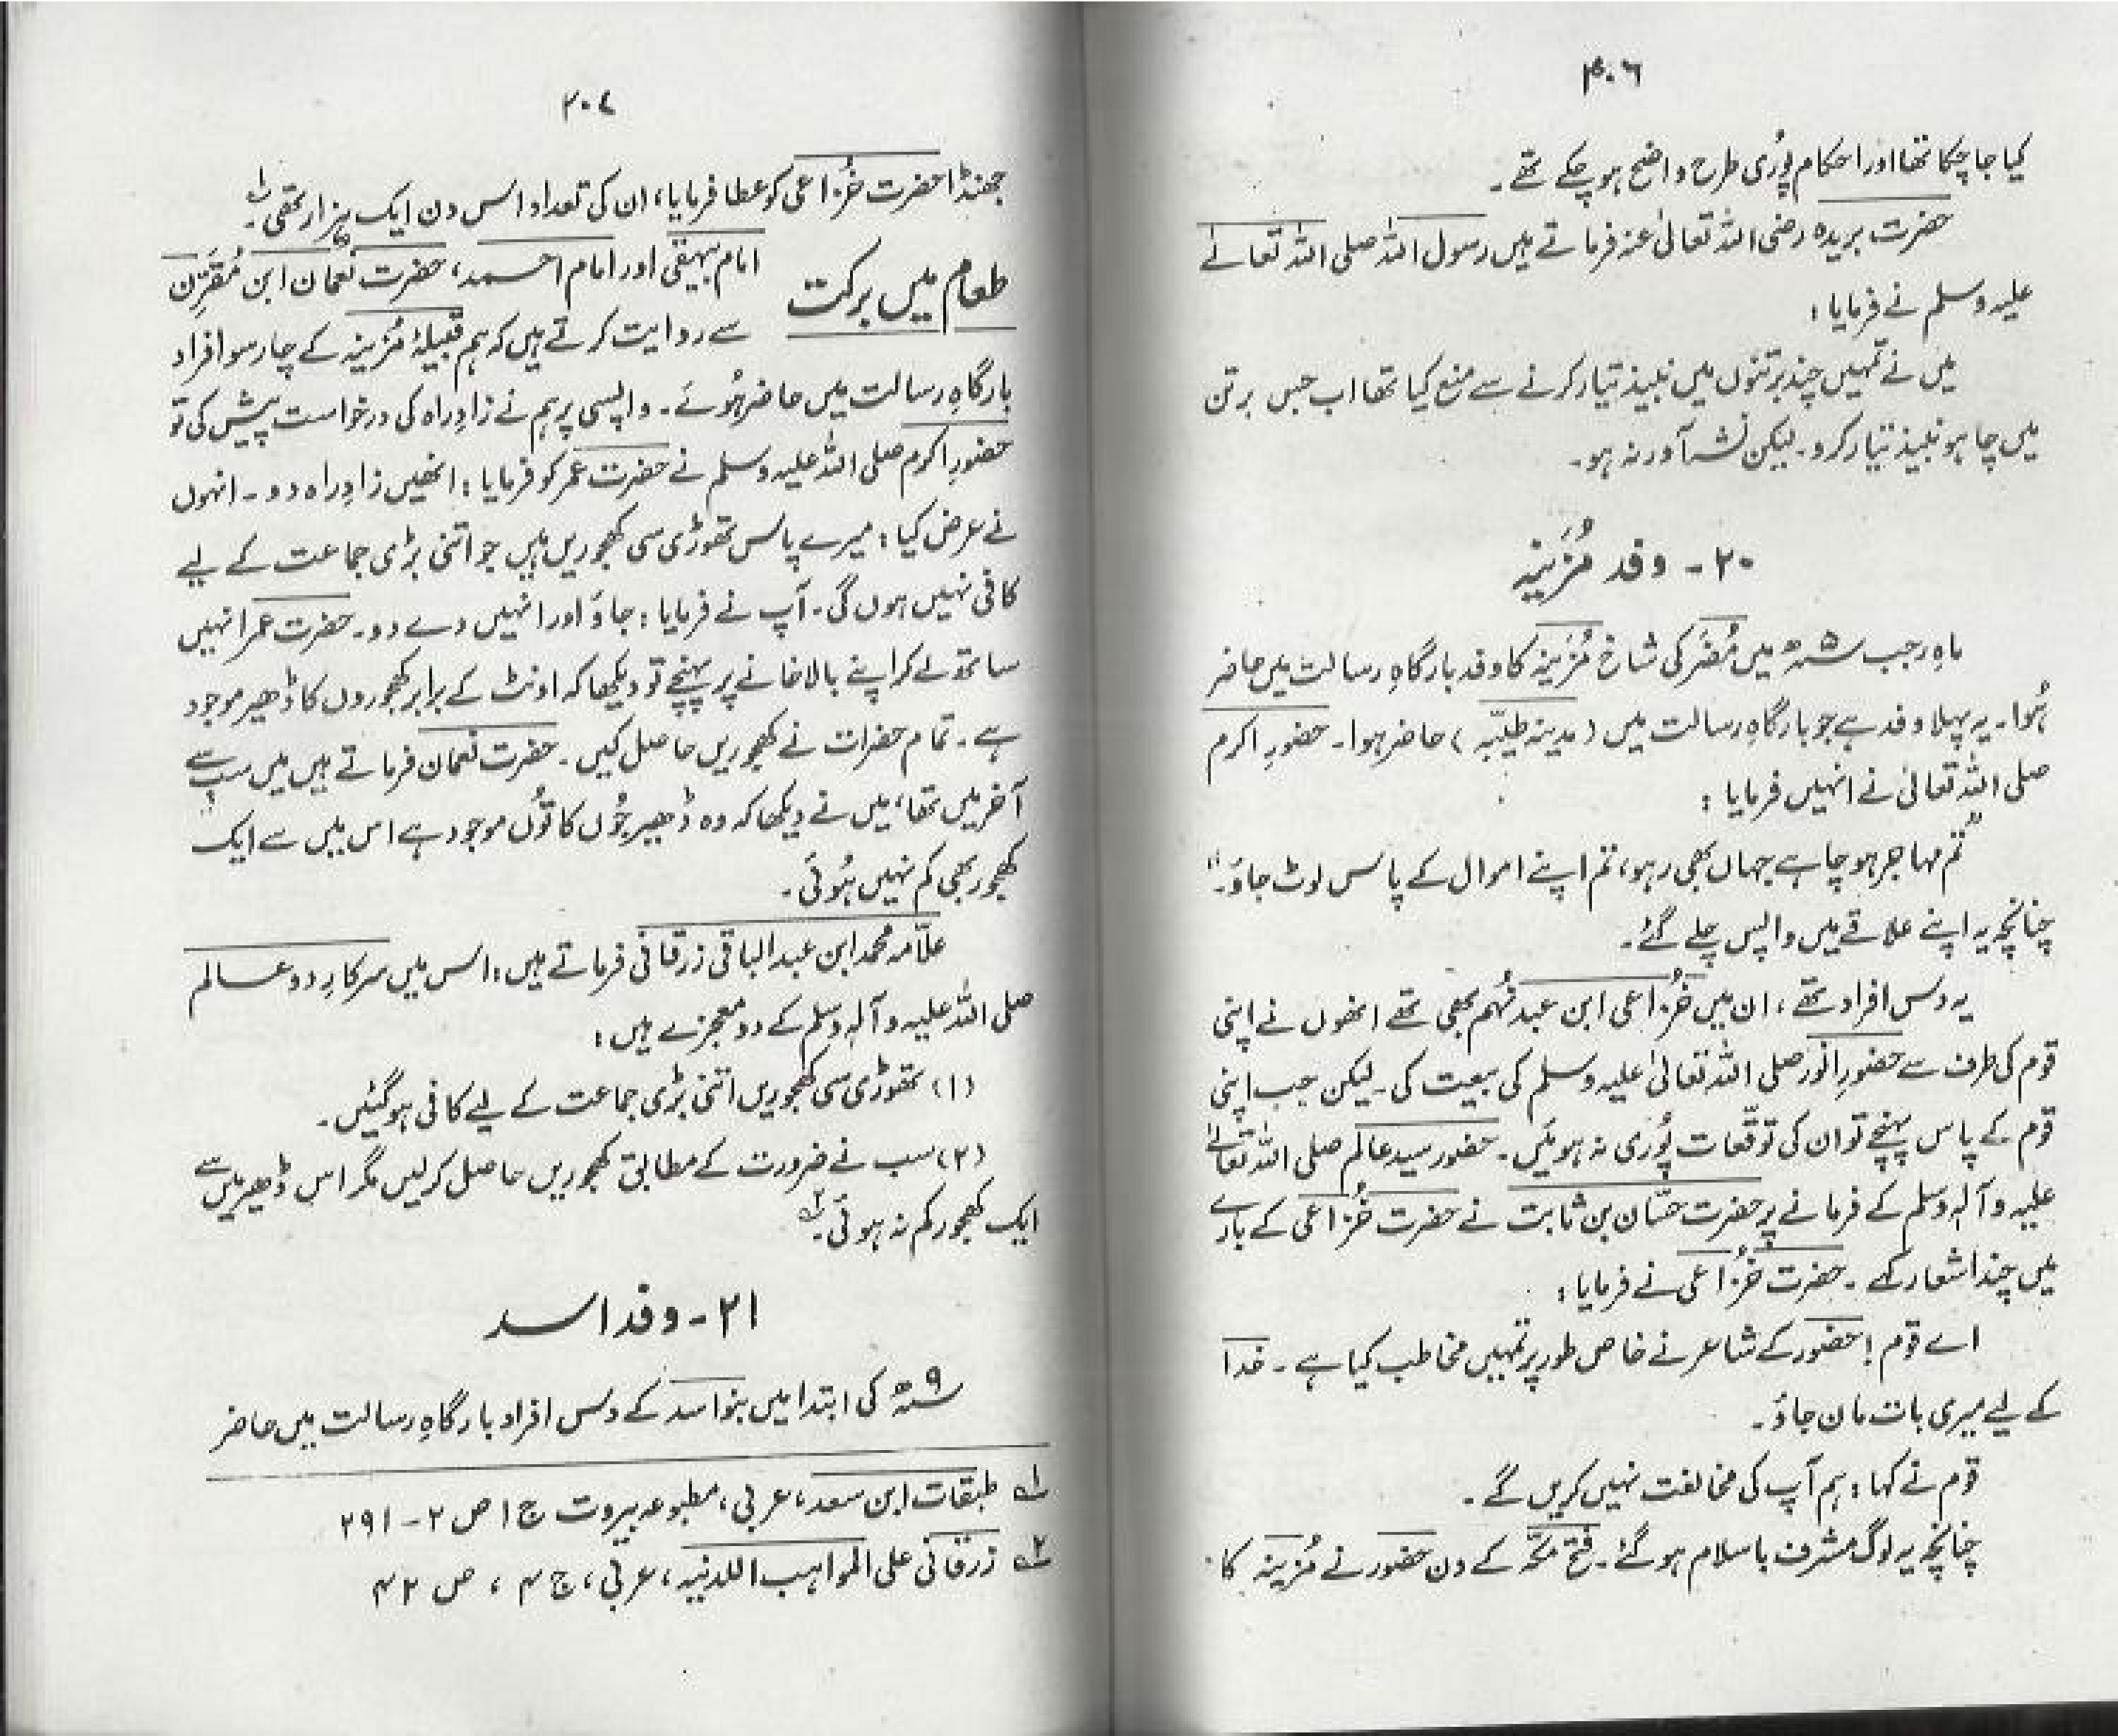 ۴۰۶
کیا جا چکا تھا اور احکام پُوری طرح واضح ہو چکے تھے۔
حضرت بریدہ رضی اللہ تعالیٰ عنہ فرماتے ہیں رسول اللہ صلی اللہ تعالےٰ
علیہ وسلم نے فرمایا:
میں نے تمہیں چند برتنوں میں نبیذ تیار کرنے سے منع کیا تھا اب جس برتن
میں چاہو نبیذ تیار کرو۔ لیکن نشہ آور نہ ہو۔
۲۰- وفد مُزَینہ
ماہِ رجب ۵ھ میں مُضَر کی شاخ مُزَینہ کا وفد بارگاہِ رسالت میں حاضر
ہُوا۔ یہ پہلا وفد ہے جو بارگاہِ رسالت میں (مدینہ طیّبہ) حاضر ہوا۔ حضورِ اکرم
صلی اللہ تعالیٰ نے انہیں فرمایا:
"تم مہاجر ہو چاہے جہاں بھی رہو، تم اپنے اموال کے پاس لوٹ جاؤ۔"
چنانچہ یہ اپنے علاقے میں واپس چلے گئے۔
یہ دس افراد تھے، ان میں خُزاعی ابن عبد نُہم بھی تھے انھوں نے اپنی
قوم کی طرف سے حضورِ انور صلی اللہ تعالیٰ علیہ وسلم کی بیعت کی۔ لیکن جب اپنی
قوم کے پاس پہنچے تو ان کی توقعات پُوری نہ ہوئیں۔ حضور سید عالم صلی اللہ تعالےٰ
علیہ وآلہ وسلم کے فرمانے پر حضرت حسّان بن ثابت نے حضرت خُزاعی کے بارے
میں چند اشعار کہے۔ حضرت خُزاعی نے فرمایا:
اے قوم! حضور کے شاعر نے خاص طور پر تمہیں مخاطب کیا ہے۔ خدا
کے لیے میری بات مان جاؤ۔
قوم نے کہا: ہم آپ کی مخالفت نہیں کریں گے۔
چنانچہ یہ لوگ مشرف باسلام ہو گئے۔ فتح مکّہ کے دن حضور نے مُزینہ کا
۴۰۷
جھنڈا حضرت خُزاعی کو عطا فرمایا، ان کی تعداد اس دن ایک ہزار تھی۔ ۱؎
طعام میں برکت
امام بیہقی اور امام احمد، حضرت نعمان ابن مُقَرِّن
سے روایت کرتے ہیں کہ ہم قبیلۂ مُزینہ کے چار سو افراد
بارگاہِ رسالت میں حاضر ہُوئے۔ واپسی پر ہم نے زادِ راہ کی درخواست پیش کی تو
حضورِ اکرم صلی اللہ علیہ وسلم نے حضرت عمر کو فرمایا: انھیں زادِ راہ دو۔ انہوں
نے عرض کیا: میرے پاس تھوڑی سی کھجوریں ہیں جو اتنی بڑی جماعت کے لیے
کافی نہیں ہوں گی۔ آپ نے فرمایا: جاؤ اور انہیں دے دو۔ حضرت عمر انہیں
ساتھ لے کر اپنے بالا خانے پر پہنچے تو دیکھا کہ اونٹ کے برابر کھجوروں کا ڈھیر موجود
ہے۔ تمام حضرات نے کھجوریں حاصل کیں۔ حضرت نعمان فرماتے ہیں میں سب سے
آخر میں تھا، میں نے دیکھا کہ وہ ڈھیر جُوں کا تُوں موجود ہے اس میں سے ایک
کھجور بھی کم نہیں ہُوئی۔
علّامہ محمد ابن عبد الباقی زرقانی فرماتے ہیں: اس میں سرکارِ دو عالم
صلی اللہ علیہ وآلہٖ وسلم کے دو معجزے ہیں:
(۱) تھوڑی سی کھجوریں اتنی بڑی جماعت کے لیے کافی ہو گئیں۔
(۲) سب نے ضرورت کے مطابق کھجوریں حاصل کر لیں مگر اس ڈھیر میں سے
ایک کھجور کم نہ ہوئی۔ ۲؎
۲۱- وفد اسد
۹ھ کی ابتدا میں بنو اسد کے دس افراد بارگاہِ رسالت میں حاضر
۱؎ طبقات ابن سعد، عربی، مطبوعہ بیروت ج ۱ ص ۲-۲۹۱
۲؎ زرقانی علی المواہب اللدنیہ، عربی، ج ۴، ص ۴۲